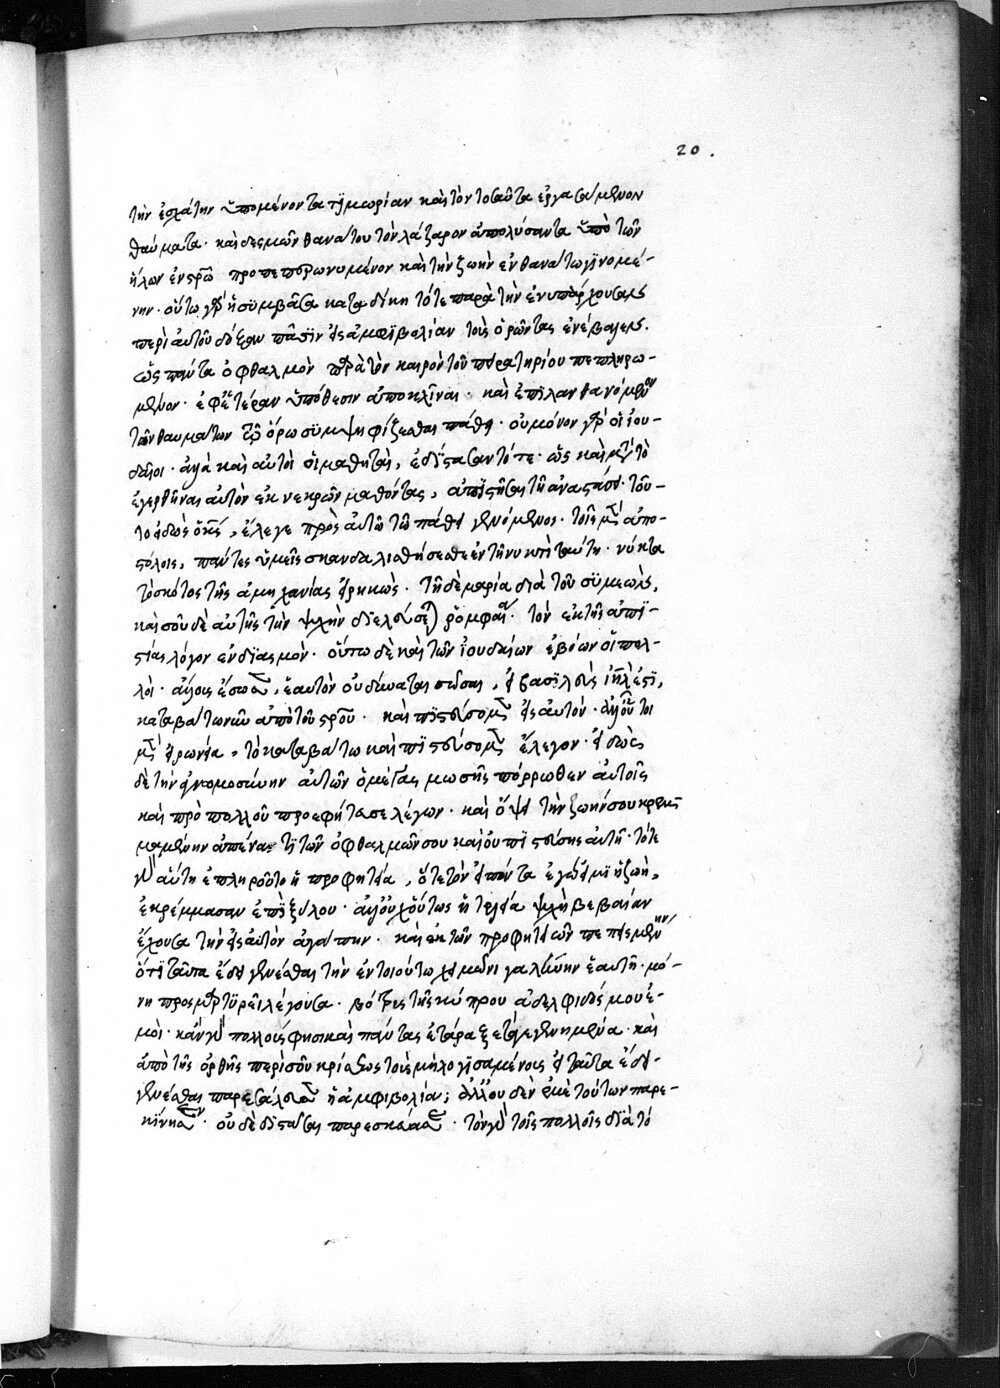 20.
τὴν ἐσχάτην ὑπομένοντα τϊμωρίαν καὶ τὸν τοσαῦτα ἐργασάμενον
θαύματα· καὶ δεσμῶν θανάτου τὸν λάζαρον ἀπολύσαντα ὑπὸ τῶν
ἥλων ἐν σρῶ προπεπορωνυμένον καὶ τὴν ζωὴν ἐν θανάτω γϊνομέ-
νην· οὕτω γὰρ ἡ συμβᾶσα καταδίκη τότε παρὰ τὴν ἐνυπάρχουσαν
περὶ αὐτοῦ δόξαν πᾶσϊν εἰς ἀμφϊβολίαν τοὺς ὁρῶντας ἐνέβαλεν.
ὡς πάντα ὀφθαλμὸν παρὰ τὸν καιρὸν τοῦ πειρατηρίου πεπληρω-
μένον· ἐφ' ἑτέραν ὑπόθεσιν ἀποκλῖναι· καὶ ἐπϊλανθανόμενον
τῶν θαυμάτων τῶ ὁρω συμψηφίζεσθαι πάθει· οὐ μόνον γὰρ οἱ ἰου-
δαῖοι· ἀλλὰ καὶ αὐτοὶ οἱ μαθηταὶ, ἐδίστασαν τότε· ὡς καὶ μετὰ τὸ
ἐγερθῆναι αὐτὸν ἐκ νεκρῶν μαθόντας, ἀπϊστῆσαι τῆ ἀναστάσει· τοῦ-
το εἰδὼς ὁ κς, ἔλεγε πρὸς αὐτῶ τῶ πάθει γενόμενος· τοῖς μὲν ἀπο-
στόλοις, πάντες ὑμεῖς σκανδαλισθήσεσθε ἐν τῆ νυκτὶ ταύτη· νύκτα
τὸ σκότος τῆς ἀμηχανίας εἰρηκὼς· τῆ δὲ μαρία διὰ τοῦ συμεὼν,
καὶ σοῦ δὲ αὐτῆς τὴν ψχὴν διελεύσεται ῥομφαία· τὸν ἐκ τῆς ἀπϊ-
στίας λόγον ἐνδϊασμὸν· οὕτω δὲ καὶ τῶν ἰουδαίων ἐβόων οἱ πολ-
λοὶ· ἄλλους ἔσωσεν, ἑαυτὸν οὐ δύναται σῶσαι, εἰ βασϊλεὺς ιηλ ἐστϊ,
καταβάτω νῦν ἀπὸ τοῦ σροῦ· καὶ πϊστεύσομεν εἰς αὐτόν· ἀλλ' οὗτοι
μὲν εἰρωνεία, τὸ καταβάτω καὶ πϊστεύσομεν ἔλεγον· εἰδὼς
δὲ τὴν ἀγνωμοσύνην αὐτῶν ὁ μέγας μωσῆς πόρρωθεν αὐτοῖς
καὶ πρὸ πολλοῦ προεφήτασε λέγων· καὶ ὄψει τὴν ζωήν σου κρεμα-
μένην ἀπέναντϊ τῶν ὀφθαλμῶν σου καὶ οὐ πϊστεύσης αὐτῆ· τότε
γὰρ αὕτη ἐπληροῦτο ἡ προφητεία, ὅτε τὸν εἰπόντα ἐγώ εἰμϊ ἡ ζωὴ,
ἐκρέμμασαν ἐπϊ ξύλου· ἀλλ' οὐχ οὕτως ἡ τελεία ψχὴ βεβαίαν
ἔχουσα τὴν εἰς αὐτὸν ἀγάπην· καὶ ἐκ τῶν προφητειῶν πεπεισμένην
ὅτϊ ταῦτα ἔδει γενέσθαι τὴν ἐν τοιούτω χειμῶνι γαλήνην ἑαυτῆ· μό-
νη προσμαρτυρεῖ λέγουσα· βότρυς τῆς κύπρου ἀδελφιδός μου ἐ-
μοὶ· κἂν γὰρ πολλούς φησι καὶ πάντας ἐτάραξε τὰ γεγενημένα· καὶ
ἀπὸ τῆς ὀρθῆς περὶ σοῦ κρίσεως τοὺς μὴ λογϊσαμένους εἰ ταῦτα ἔδει
γενέσθαι παρεσάλευσεν ἡ ἀμφιβολία; ἀλλ' οὐδὲν ἐμὲ τούτων παρε-
κίνησεν· οὐδὲ δϊστάσαι παρεσκεύασεν· τὸν γὰρ τοῖς πολλοῖς διὰ τὸ